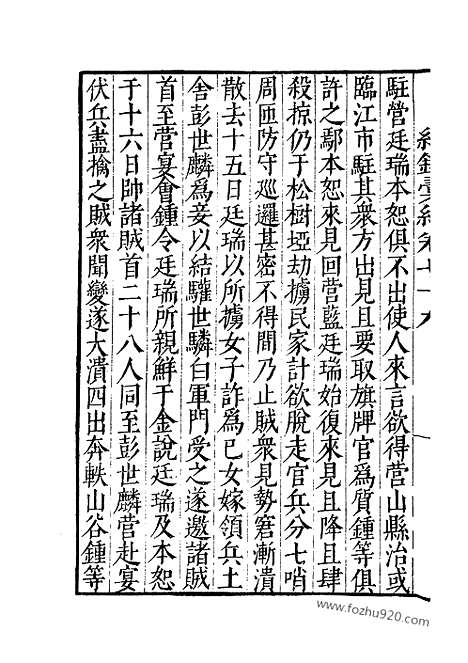 駐營廷瑞本恕俱不出使人來言欲得營山縣治或
臨江市駐其衆方出見且要取旗牌官爲質鍾等俱
許之鄢本恕來見回營藍廷瑞始復來見且降且肆
殺掠仍于松樹埡劫擄民家計欲脫走官兵分七哨
周匝防守巡邏甚密不得間乃止賊衆見勢窘漸潰
散去十五日廷瑞以所擄女子詐爲己女嫁領兵土
舍彭世麟爲妾以結驩世驎白軍門受之遂邀諸賊
首至營宴會鍾令廷瑞所親鮮于金說廷瑞及本恕
于十六日帥諸賊首二十八人同至彭世麟營赴宴
伏兵盡擒之賊衆聞變遂大潰四出奔軼山谷鍾等
www.fozhu920.com